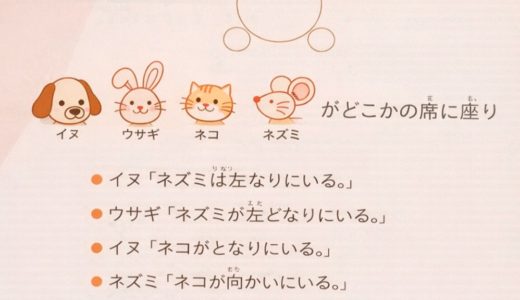 イヌ ウサギ ネコ ネズミ がどこかの席に座り
イヌ「ネズミは左なりにいる。」
ウサギ「ネズミが左どなりにいる。」
イヌ「ネコがとなりにいる。」
ネズミ「ネコが向かいにいる。」